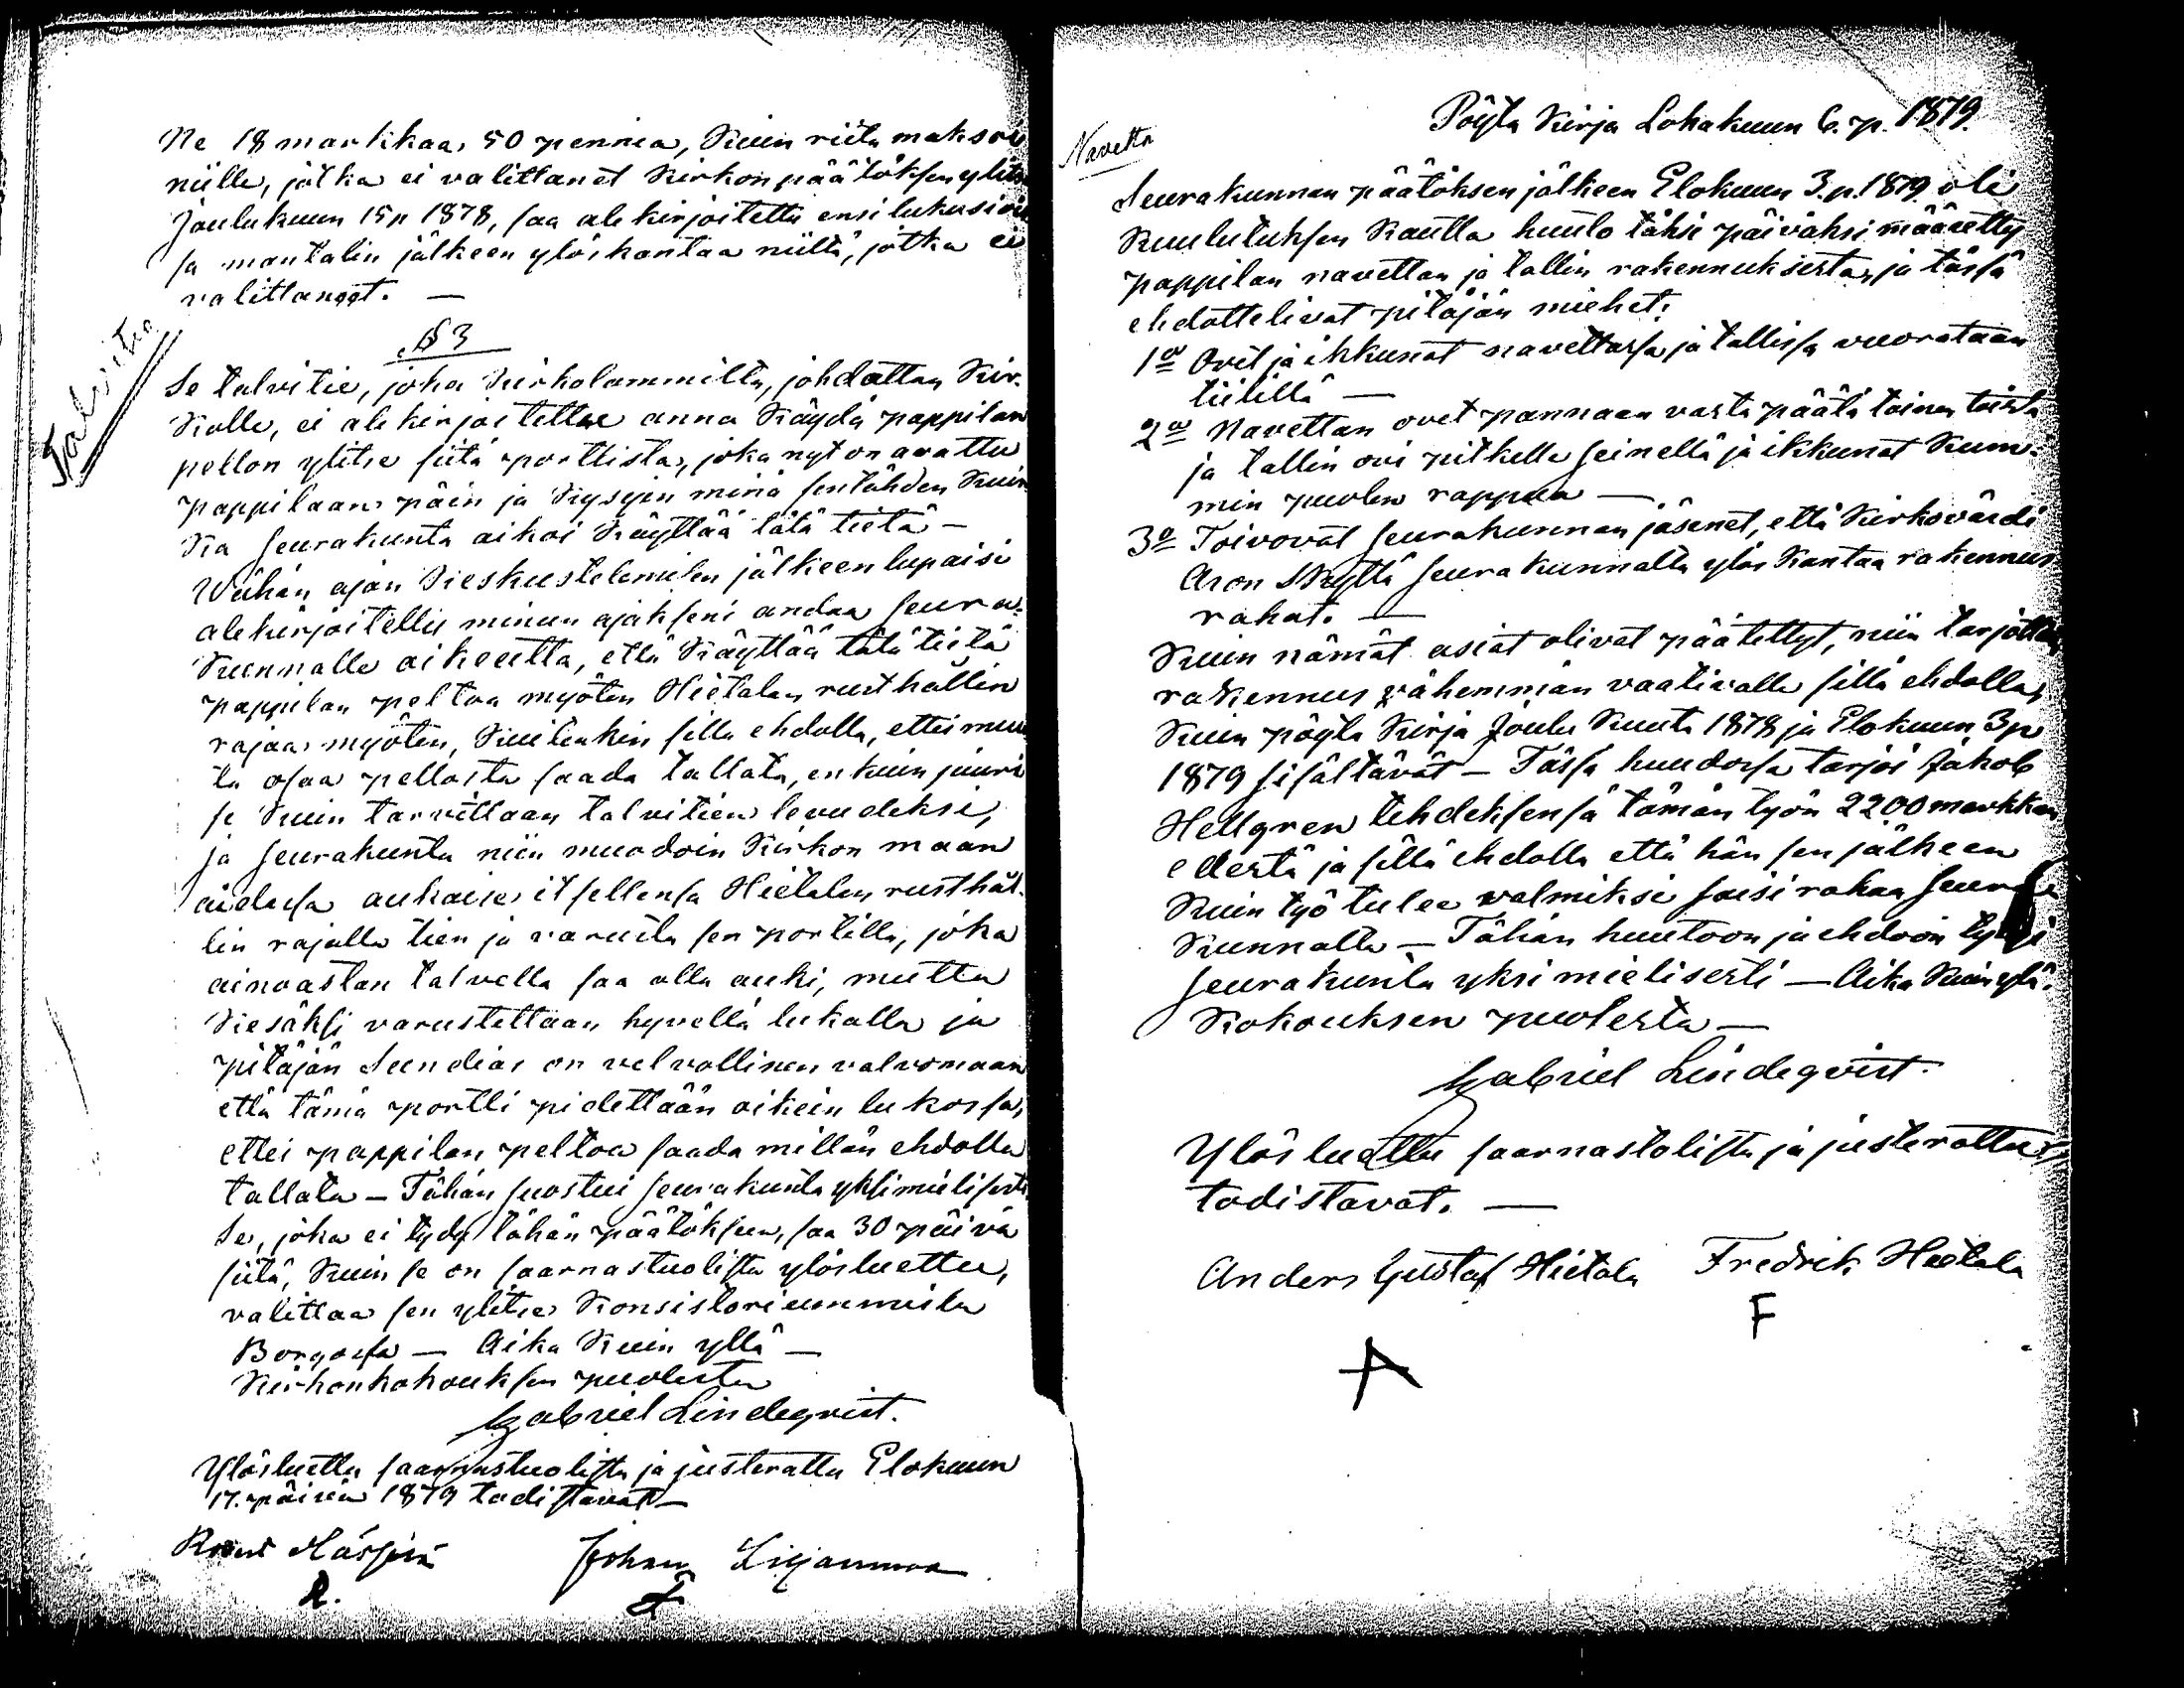 Ne 18 markkaa, 50 pennia, Kuin riita maksoi
niille, jotka ei valittanet Kirkon päätöksen ylitse
Joulukuun 15 p 1878, saa ale kirjoitettu ensi lukusioi
sa mantalin jälkeen ylöskantaa niiltä, jotka ei
valittaneet. —
Talvitie
§ 3
Se talvi tie, joka Kirkolammilta, johdattaa Kir-
Kolle, ei ale kirjoitettue anna Käydä pappilan
pellon ylitse siitä porttista, joka nyt on avattu
pappilaan päin ja Kysyin minä sentähden Kuin
Ka seurakunta aikoi Käyttää tätä tietä —
Wähän ajan Keskustelemisen jälkeen lupaisi
alekirjoitettu minun ajakseni andaa seura-
Kunnalle oikeutta, että Käyttää tätä tietä
pappilan peltoa myöten Hietalan rusthållin
rajaa myöten, Kuitenkin sillä ehdolla, ettei muu
ta osaa pellosta saada tallata, en kuin juuri
se Kuin tarvittaan talvitien leveudeksi,
ja seurakunta niin muodoin Kirkon maan
aidassa aukaise itsellensa Hietalan rusthål-
lin rajalla tien ja varusta sen portilla, joka
ainoastan talvella saa olla auki, mutta
Kesäksi varustettaan hyvellä lukalla ja
pitäjän Seundiar on velvollinen valvomaan
että tämä portti pidettään oikein lukossa,
ettei pappilan peltoa saada millän ehdolla
tallata — Tähän suostui seurakunta yksimielisesti
Se, joka ei tydy tähän päätöksen, saa 30 päivä
siitä, Kuin se on saarnastuolista ylösluettu,
valittaa sen ylitse Konsistoriummista
Borgossa — Aika Kuin yllä —
Kirkonkokouksen puolesta
Gabriel Lindeqvist.
Ylösluettu saarnastuolista ja justerattu Elokuun
17. päivän 1879 todistavat —
Johan Liljanmaa
Pöytä Kirja Lokakuun 6. p. 1879.
Navetta
Seurakunnan päätöksen jälkeen Elokuun 3. p. 1879 oli
Kuulutuksen Kautta huuto täksi päiväksi määretty
pappilan navettan ja tallin rakennuksesta, ja tässä
ehdottelivat pitäjän miehet:
1o Ovet ja ikkunat navettassa ja tallissa vuorataan
tiilillä —
2o Navettan ovet pannaan vasta päätä toinen toista
ja tallin ovi pitkelle seinellä ja ikkunat Kum-
min puolen rappua —
3o Toivovat seurakunnan jäsenet, että Kirkovärdi
Aron Skyttä seurakunnalta ylös Kantaa rakennus
rahat. —
Kuin nämät asiat olivat päätettyt, niin tarjottiin
rakennus vähemmän vaativalle sillä ehdolla,
Kuin pöytä Kirja Joulu Kuuta 1878 ja Elokuun 3 p
1879 sisältävät — Tässa huudossa tarjoi Jakob
Hellgren tehdeksensä tämän työn 2200 markkan
edestä ja sillä ehdolla että hän sen jälkeen
Kuin työ tulee valmiksi saisi rahan seura
Kunnalta — Tähän huutoon ja ehdoin tydyi
seurakunta yksimielisesti — Aika Kuin yllä.
Kokouksen puolesta —
Gabriel Lindeqvist.
Ylösluettu saarnastolista ja justerattu,
todistavat. —
Anders Gustaf Hietala Fredrik Hietala
A F